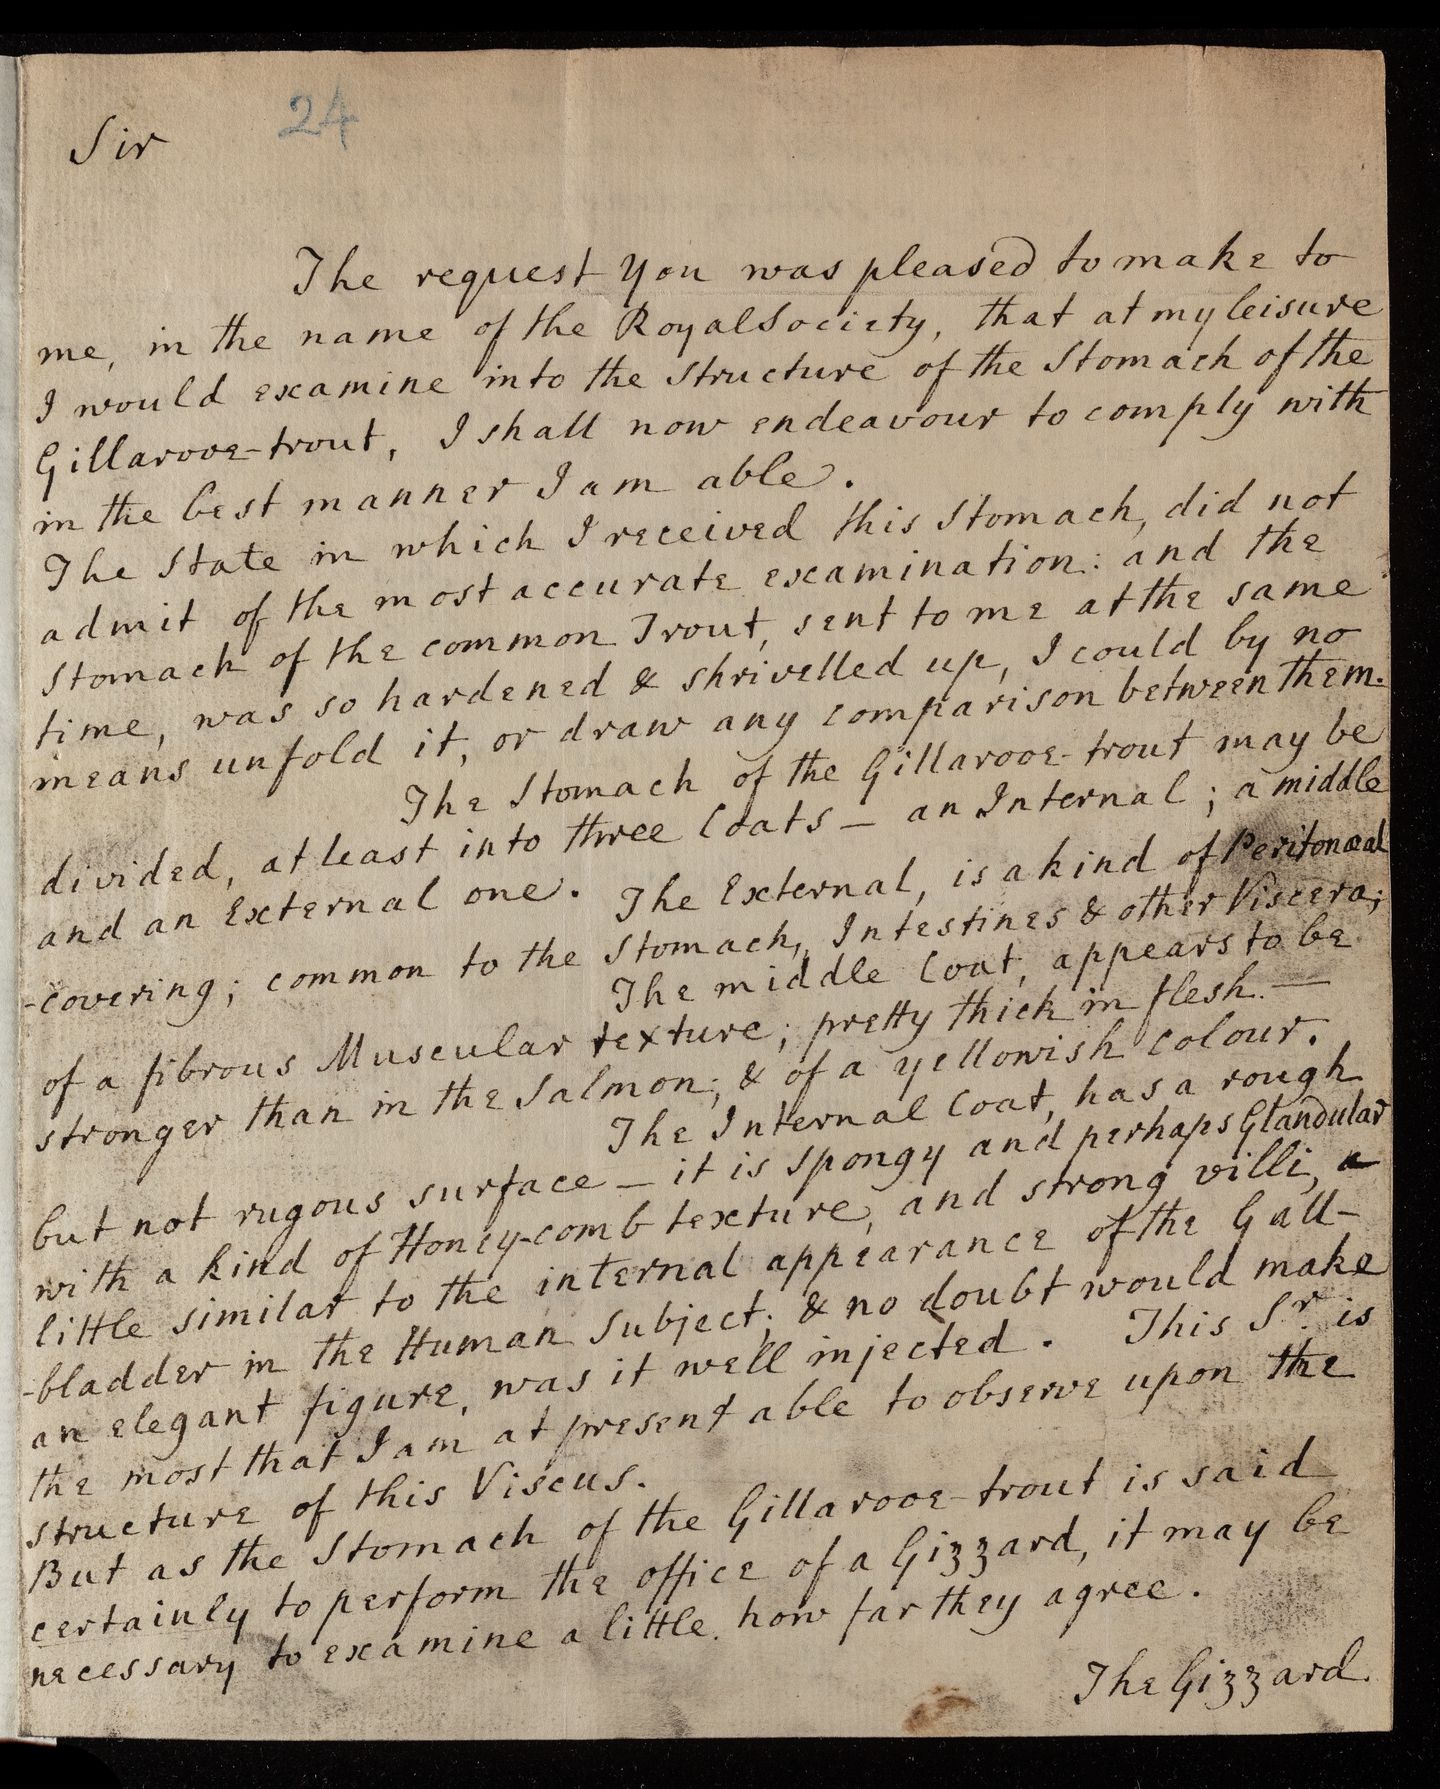 24
Sir
The request you was pleased to make to
me, in the name of the Royal Society, that at my leisure
I would examine into the structure of the Stomach of the
Gillarooe-trout, I shall now endeavour to comply with
in the best manner I am able.
The State in which I received this Stomach, did not
admit of the most accurate examination: and the
Stomach of the common Trout, sent to me at the same
time, was so hardened & shrivelled up, I could by no
means unfold it, or draw any comparison between them.
The Stomach of the Gillarooe-trout may be
divided, at least into three Coats — an Internal; a middle
and an External one. The External, is a kind of Peritonæal
-covering; common to the Stomach, Intestines & other Viscera;
The middle Coat, appears to be
of a fibrous Muscular texture; pretty thick in flesh. —
stronger than in the Salmon; & of a yellowish colour.
The Internal Coat, has a rough
but not rugous surface — it is spongy and perhaps Glandular
with a kind of Honey-comb texture, and strong villi, a
little similar to the internal appearance of the Gall-
-bladder in the Human Subject; & no doubt would make
an elegant figure, was it well injected. This Sr. is
the most that I am at present able to observe upon the
structure of this Viscus.
But as the Stomach of the Gillarooe-trout is said
certainly to perform the office of a Gizzard, it may be
necessary to examine a little how far they agree.
The Gizzard.